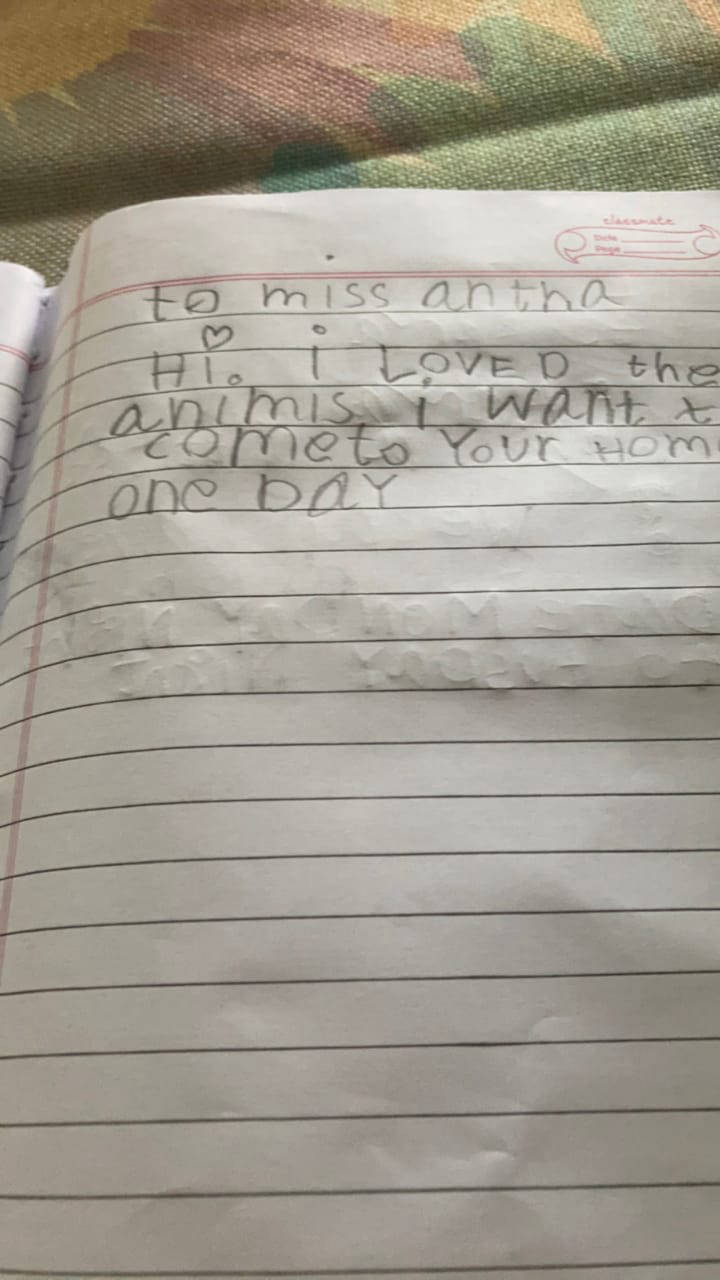 classmate
Date
Page
to miss antha
Hi. i LOVED the
animis i want t
come to Your Hom
one DAY